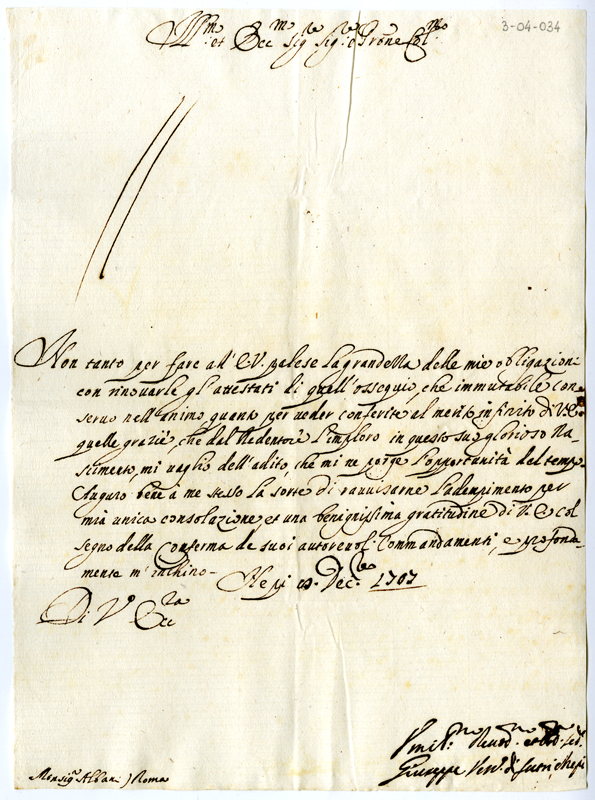 3-04-034
Ill.mo et Ecc.mo Sig.re Sig.re e Prone Col.mo
Non tanto per fare all'E.V. palese la grandezza delle mie obligazioni
con rinovarle gl'attestati di quell'ossequio, che immutabile con=
servo nell'animo quanto per veder conferite al merito infinito di V.E.
quelle grazie, che dal Redentore l'imploro in questo suo glorioso Na=
scimento, mi vaglio dell'adito, che mi ne porge l'opportunità del tempo
Auguro bene à me stesso la sorte di ravvisarne l'adempimento per
mia unica consolazione, et una benignissima gratitudine di V.E. col
segno della conferma de suoi autorevoli Commandamenti, e profonda=
mente m'inchino- Nepi Dec.bre 1707
Di V.a Ecc.za
Umil.mo Devot. et
Giuseppe Vesc.o di Sutri, e Nepi
Monsig.r Albani ) Roma